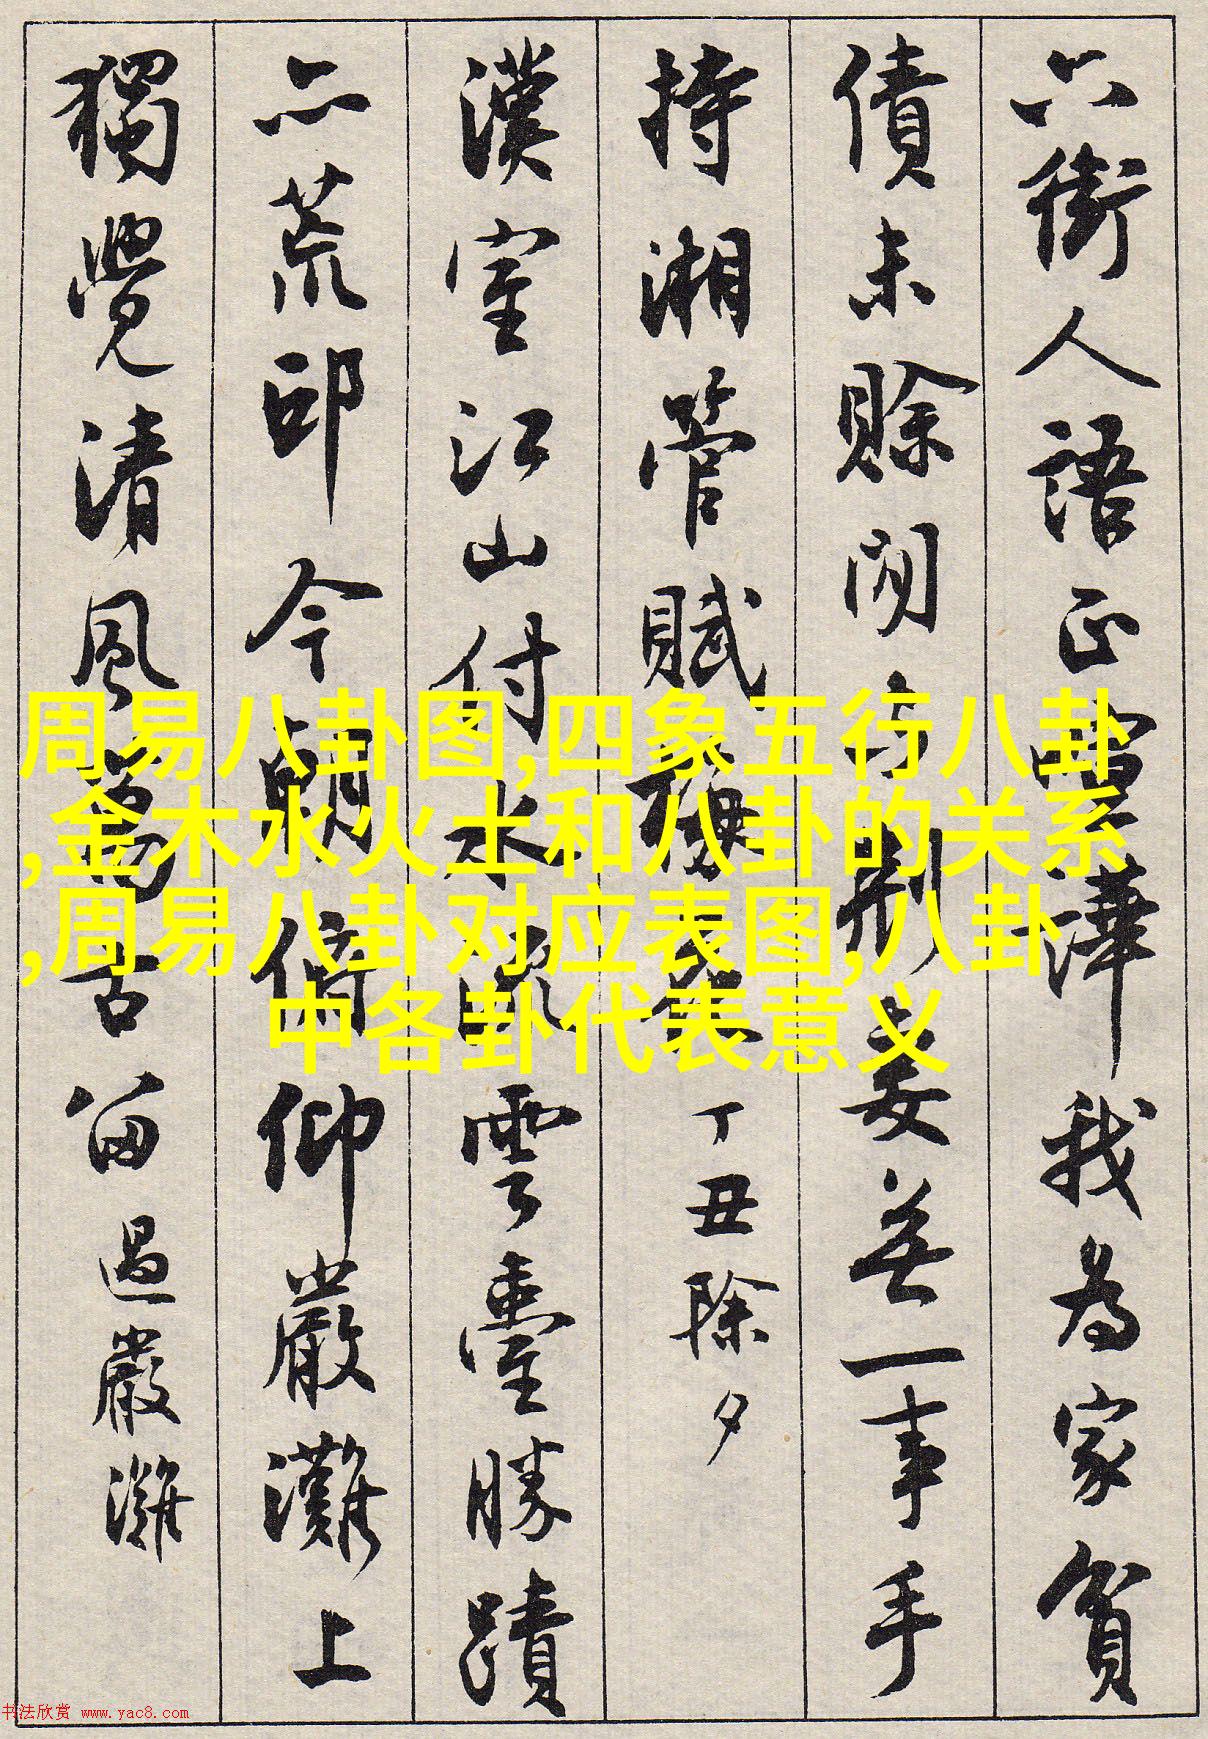 六街人語正喧譁我為家貧
債未賒閒荆妻無一事手
持湘管賦梅花丁丑除夕
漢室江山付水流雲臺勝蹟
亦荒邱今朝俯仰嚴灘上
獨覺清風萬古留過嚴灘
周易八卦图,四象五行八卦
,金木水火土和八卦的关系
,周易八卦对应表图,八卦
中各卦代表意义
书法欣赏 www.yac8.com